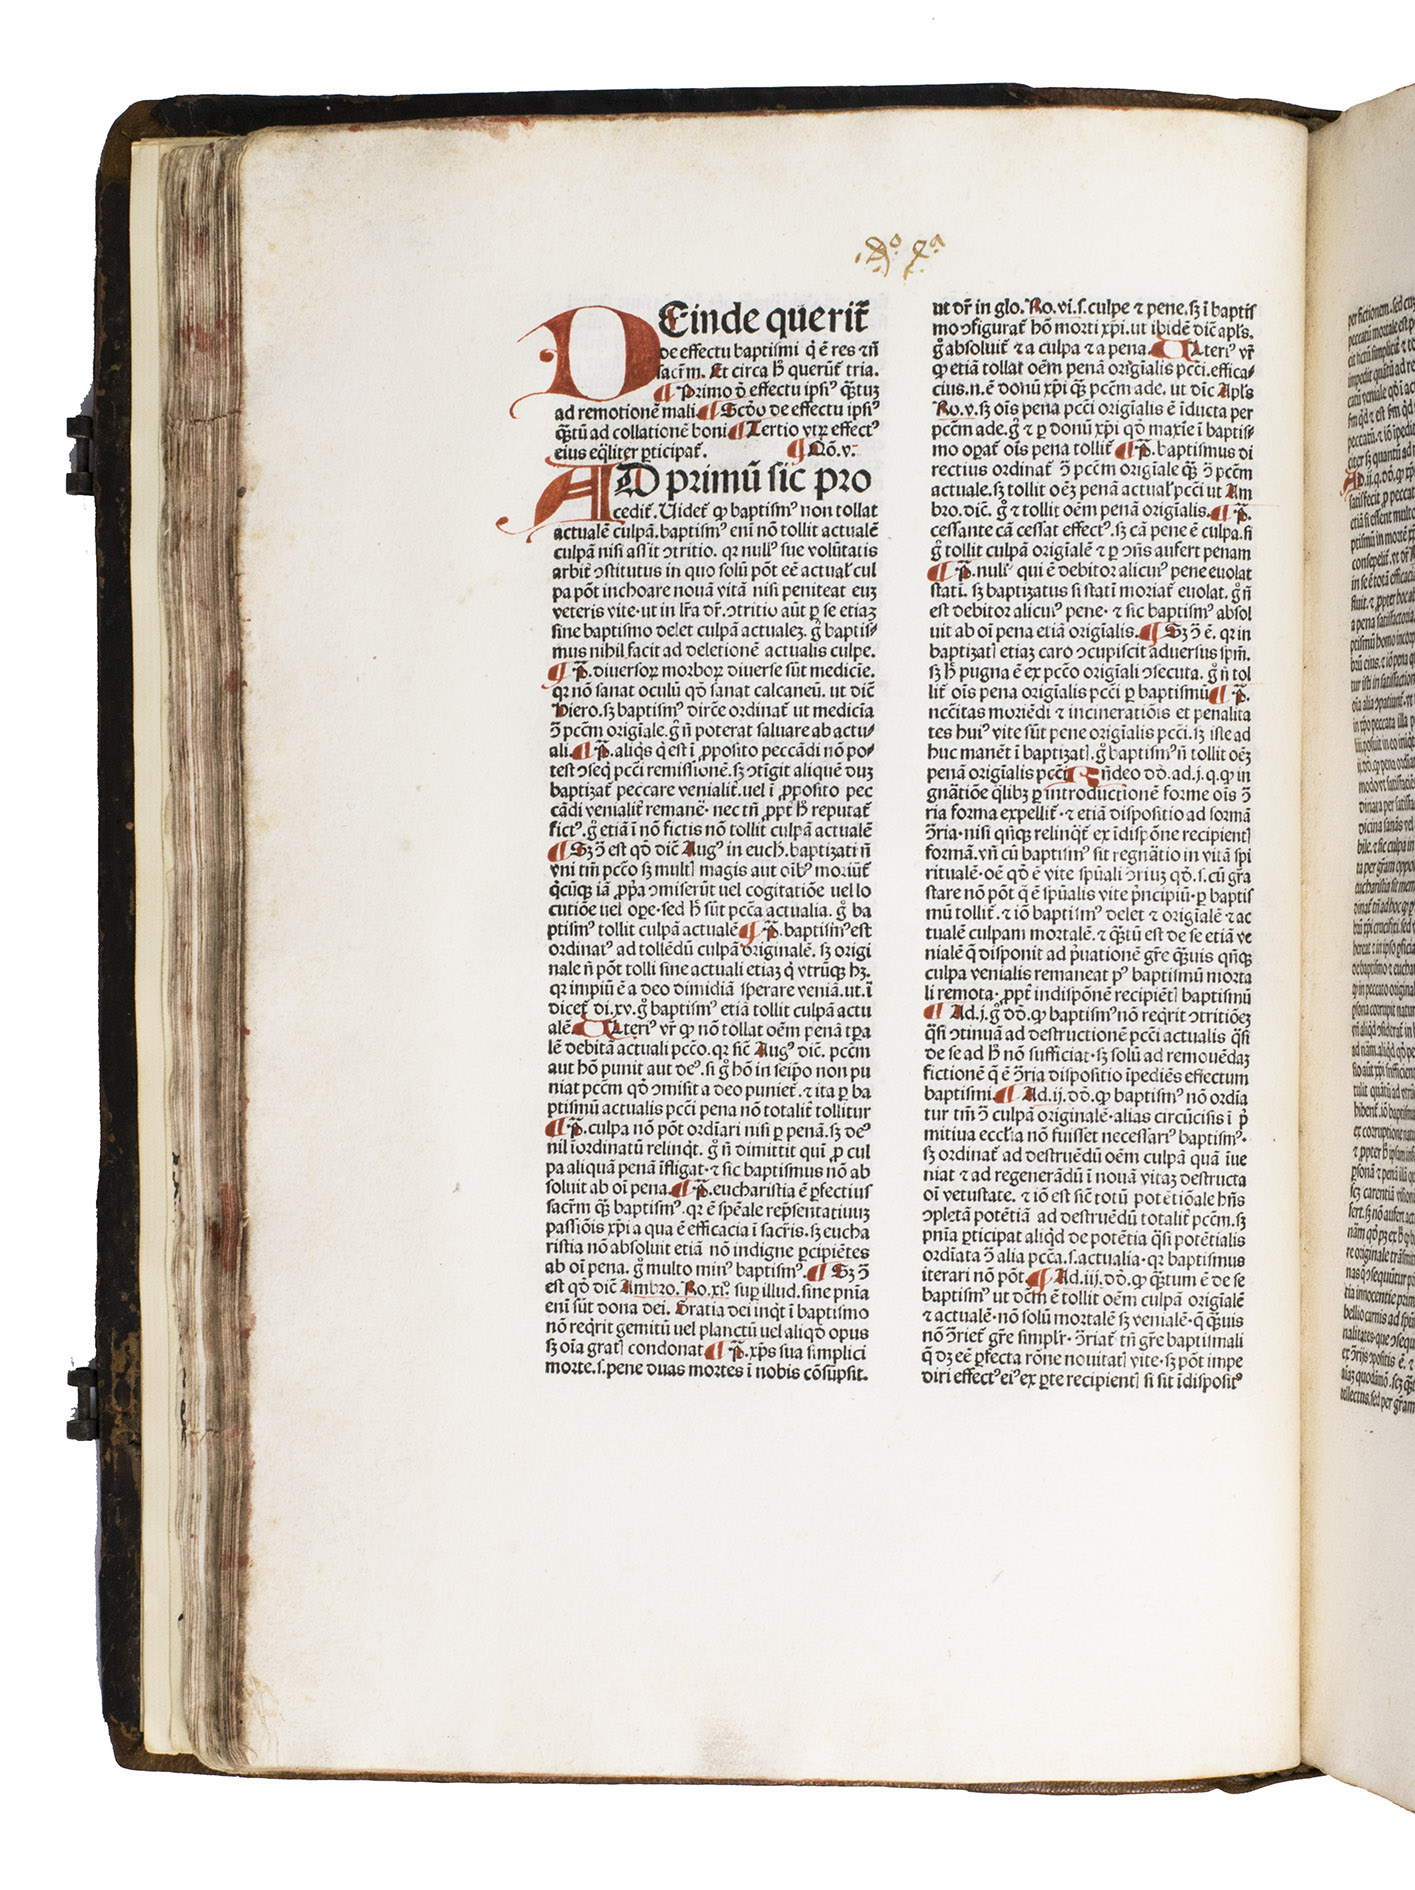 .d̄º. q̄ª.
DEinde querit᷑
de effectu baptismi q̇ ē res ⁊ nō
sacr̄m. Et circa h̄ querūt᷑ tria.
¶ Primo d̄ effectu ipsiꝰ quātuꝫ
ad remotionē mali. ¶ Scd̄o de effectu ipsiꝰ
quātū ad collationē boni ¶ Tertio vtꝝ effectꝰ
eius eq̄liter ꝑticipat᷑. ¶ Qō. v.
AD primū sic pro
cedit᷑. Videt᷑ ꝙ baptismꝰ non tollat
actualē culpā. baptismꝰ eni nō tollit actualē
culpā nisi assit ↄtritio. qꝛ nullꝰ sue volūtatis
arbit᷑ ↄstitutus in quo solū pōt eē actual̓ cul
pa pōt inchoare nouā vitā nisi peniteat euꝫ
veteris vite. ut in lr̄a dr̄. ↄtritio aūt ꝑ se etiaꝫ
sine baptismo delet culpā actualeꝫ. g̊ baptis⸗
mus nihil facit ad deletionē actualis culpe.
¶ P̄. diuersoꝝ morboꝝ diuerse sūt medicīe.
qꝛ nō sanat oculū qd̄ sanat calcaneū. ut dic̄
Hiero. sꝫ baptismꝰ dirc̄e ordinat᷑ ut medicīa
ↄ̄ pcc̄m origīale. g̊ n̄ poterat saluare ab actu⸗
ali. ¶ P̄. aliq̄s q̇ est ī ꝓposito peccādi nō po⸗
test ↄseq̇ pcc̄i remissionē. sꝫ ↄtīgit aliquē duꝫ
baptizat᷑ peccare venialit᷑. uel ī ꝓposito pec
cādi venialit᷑ remanē. nec tn̄ ꝓpt᷑ h̄ reputat᷑
fictꝰ. g̊ etiā ī nō fictis nō tollit culpā actualē
¶ Sꝫ ↄ̄ est qd̄ dic̄ Augꝰ in euch. baptizati n̄
vni tm̄ pcc̄o sꝫ multꝭ magis aut oībꝰ moriūt᷑
q̇cūqꝫ iā ꝓpa ↄmiserūt uel cogitatiōe uel lo
cutiōe uel oꝑe. sed h̄ sūt pcc̄a actualia. g̊ ba
ptismꝰ tollit culpā actualē ¶ P̄. baptismꝰ est
ordinatꝰ ad tollēdū culpā originalē. sꝫ origi
nale n̄ pōt tolli sine actuali etiaꝫ q̇ vtrūqꝫ hꝫ.
qꝛ impiū ē a deo dimidiā sperare veniā. ut. ī
dicet᷑ di. xv. g̊ baptismꝰ etiā tollit culpā actu
alē ¶ Vlteriꝰ vr̄ ꝙ nō tollat oēm penā tꝑa
lē debitā actuali pcc̄o. qꝛ sic̄ Augꝰ dic̄. pcc̄m
aut hō punit aut deꝰ. si g̊ hō in seip̄o non pu
niat pcc̄m qd̄ ↄmisit a deo puniet᷑. ⁊ ita ꝑ ba
ptismū actualis pcc̄i pena nō totalit᷑ tollitur
¶ P̄. culpa nō pōt ordīari nisi ꝑ penā. sꝫ deꝰ
nil īordinatū relinqt᷑. g̊ n̄ dimittit quī ꝓ cul
pa aliquā penā īfligat. ⁊ sic baptismus nō ab
soluit ab oī pena. ¶ P̄. eucharistia ē ꝑfectius
sacr̄m quā baptismꝰ. qꝛ ē spēale rep̄sentatiuuꝫ
passiōis xp̄i a qua ē efficacia ī sacr̄is. sꝫ eucha
ristia nō absoluit etiā nō indigne ꝑcipiētes
ab oī pena. g̊ multo minꝰ baptismꝰ. ¶ Sꝫ ↄ̄
est qd̄ dic̄ Ambro. Ro. xi. suꝑ illud. sine pnīa
eni sūt dona dei. Gratia dei inqt ī baptismo
nō reqrit gemitū uel planctū uel aliqd̄ opus
sꝫ oīa gratꝭ condonat ¶ P̄. xp̄s sua simplici
morte. s. pene duas mortes ī nobis cōsūpsit.
ut dr̄ in glo. Ro. vi. s. culpe ⁊ pene. sꝫ ī baptis
mo ↄfigurat᷑ hō morti xp̄i. ut ibidē dic̄ apl̄s.
g̊ absoluit᷑ ⁊ a culpa ⁊ a pena. ¶ Vlteriꝰ vr̄
ꝙ etiā tollat oēm penā origīalis pcc̄i. effica⸗
cius. n. ē donū xp̄i quā pcc̄m ade. ut dic̄ Apl̄s
Ro. v. sꝫ oīs pena pcc̄i origīalis ē īducta per
pcc̄m ade. g̊ ⁊ ꝑ donū xp̄i qd̄ maxīe ī baptis⸗
mo oꝑat᷑ oīs pena tollit᷑ ¶ P̄. baptismus di
rectius ordinat᷑ ↄ̄ pcc̄m origīale quā ↄ̄ pcc̄m
actuale. sꝫ tollit oēꝫ penā actual̓ pcc̄i ut Am
bro. dic̄. g̊ ⁊ tollit oēm penā origīalis. ¶ P̄.
cessante cā cessat effectꝰ. sꝫ cā pene ē culpa. si
g̊ tollit culpā origīalē ⁊ ꝑ ↄn̄s aufert penam
¶ P̄. nulꝰ qui ē debitor alicuiꝰ pene euolat
statī. sꝫ baptizatus si statī moriat᷑ euolat. g̊ n̄
est debitor alicuiꝰ pene. ⁊ sic baptismꝰ absol
uit ab oī pena etiā origīalis. ¶ Sꝫ ↄ̄ ē. qꝛ in
baptizatꝭ etiaꝫ caro ↄcupiscit aduersus spm̄.
sꝫ h̄ pugna ē ex pcc̄o origīali ↄsecuta. g̊ n̄ tol
lit᷑ oīs pena origīalis pcc̄i ꝑ baptismū ¶ P̄.
ncc̄itas moriēdi ⁊ incineratiōis et penalita
tes huiꝰ vite sūt pene origīalis pcc̄i. sꝫ iste ad
huc manēt ī baptizatꝭ. g̊ baptismꝰ n̄ tollit oēꝫ
penā origīalis pcc̄i Rn̄deo d̄d. ad. j. q. ꝙ in
gnātiōe qlibꝫ ꝑ introductionē forme oīs ↄ̄
ria forma expellit᷑. ⁊ etiā dispositio ad formā
ↄ̄ria. nisi qn̄qꝫ relinqt᷑ ex īdispōne recipientꝭ
formā. vn̄ cū baptismꝰ sit regnātio in vitā spi
ritualē. oē qd̄ ē vite spūali ↄ̄riuꝫ qd̄. s. cū grā
stare nō pōt q̇ ē spūalis vite p̄ncipiū. ꝑ baptis
mū tollit᷑. ⁊ iō baptismꝰ delet ⁊ origīalē ⁊ ac
tualē culpam mortalē. ⁊ quātū est de se etiā ve
nialē q̇ disponit ad p̄uationē gr̄e quāuis qn̄qꝫ
culpa venialis remaneat pꝰ baptismū morta
li remota. ꝓpt᷑ indispōnē recipiētꝭ baptismū
¶ Ad. j. g̊ d̄d. ꝙ baptismꝰ nō reqrit ↄtritiōeꝫ
q̄si ↄtinuā ad destructionē pcc̄i actualis q̄si
de se ad h̄ nō sufficiat. sꝫ solū ad remouēdaꝫ
fictionē q̇ ē ↄ̄ria dispositio īpediēs effectum
baptismi. ¶ Ad. ij. d̄d. ꝙ baptismꝰ nō ordīa
tur tm̄ ↄ̄ culpā originalē. alias circūcisis ī p̄
mitiua eccl̄ia nō fuisset necessariꝰ baptismꝰ.
sꝫ ordinat᷑ ad destruēdū oēm culpā quā īue
niat ⁊ ad regenerādū ī nouā vitaꝫ destructa
oī vetustate. ⁊ iō est sic̄ totū potētiōale hn̄s
ↄpletā potētiā ad destruēdū totalit᷑ pcc̄m. sꝫ
pnīa ꝑticipat aliqd̄ de potētia q̄si potētialis
ordīata ↄ̄ alia pcc̄a. s. actualia. qꝛ baptismus
iterari nō pōt ¶ Ad. iij. d̄d. ꝙ quātum ē de se
baptismꝰ ut dcm̄ ē tollit oēm culpā origīalē
⁊ actualē. nō solū mortalē sꝫ venialē. q̇ quāuis
nō ↄ̄riet᷑ gr̄e simplr̄. ↄ̄riat᷑ tn̄ gr̄e baptismali
q̄ dꝫ eē ꝑfecta rōne nouitatꝭ vite. sꝫ pōt impe
diri effectꝰ eiꝰ ex ꝑte recipientꝭ si sit īdispositꝰ